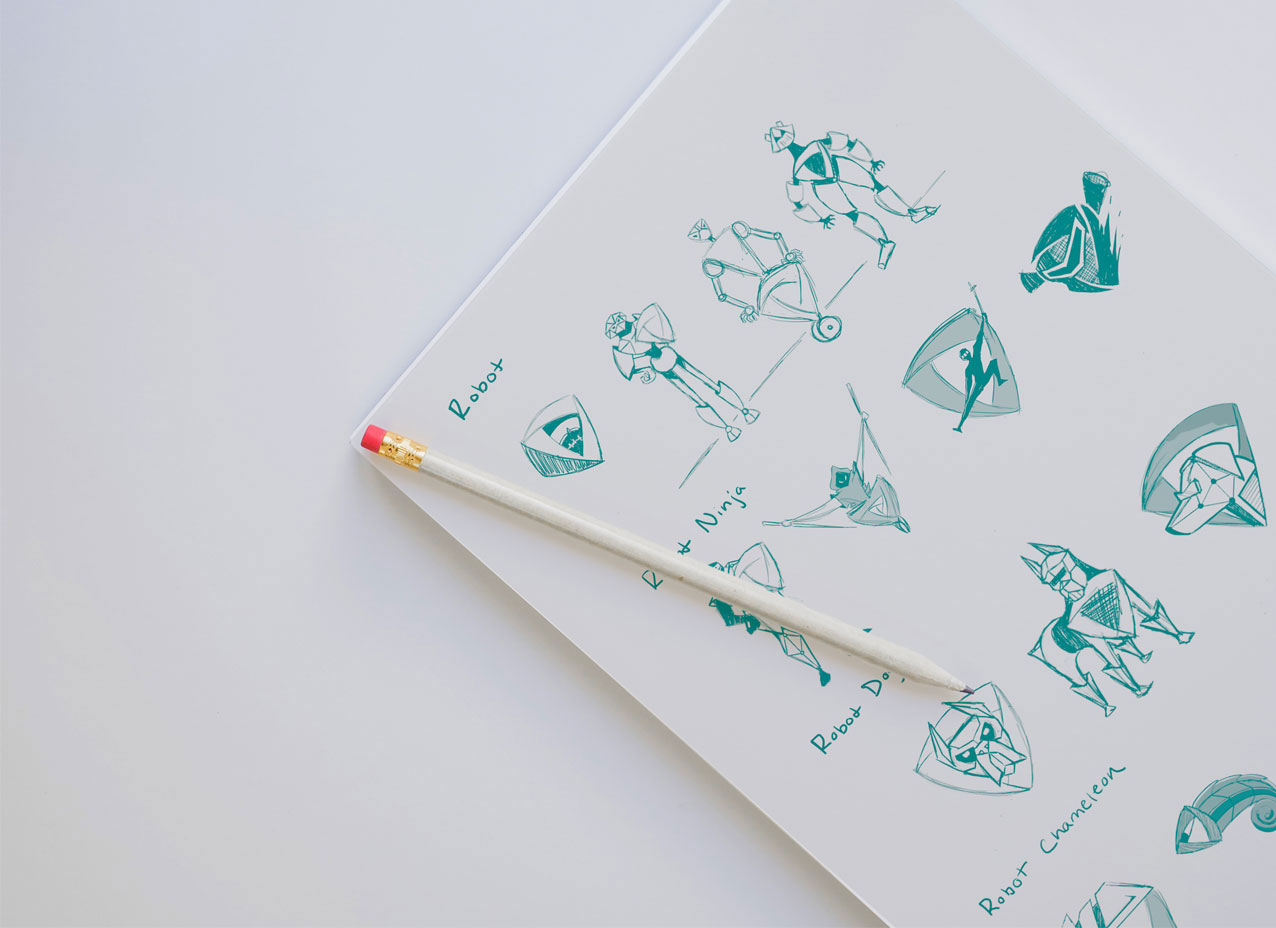 Robot
Ninja
Robot
Robot Chameleon